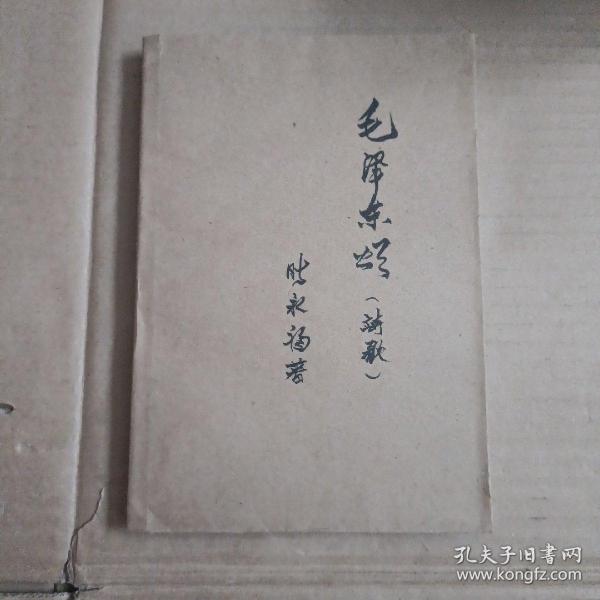 毛泽东颂（诗歌）
永福著
孔夫子旧书网
www.kongfz.com